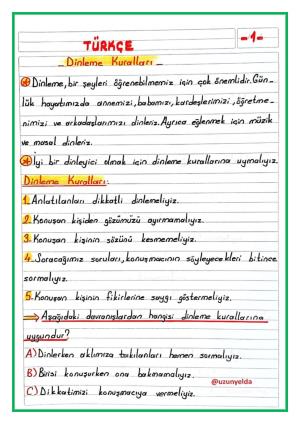 -1-
TÜRKÇE
Dinleme Kuralları
Dinleme, bir şeyleri öğrenebilmemiz için çok önemlidir. Gün-
lük hayatımızda annemizi, babamızı, kardeşlerimizi, öğretme-
nimizi ve arkadaşlarımızı dinleriz. Ayrıca eğlenmek için müzik
ve masal dinleriz.
İyi bir dinleyici olmak için dinleme kurallarına uymalıyız.
Dinleme Kuralları:
1. Anlatılanları dikkatli dinlemeliyiz.
2. Konuşan kişiden gözümüzü ayırmamalıyız.
3. Konuşan kişinin sözünü kesmemeliyiz.
4. Soracağımız soruları, konuşmacının söyleyecekleri bitince
sormalıyız.
5. Konuşan kişinin fikirlerine saygı göstermeliyiz.
⇒ Aşağıdaki davranışlardan hangisi dinleme kurallarına
uygundur?
A) Dinlerken aklımıza takılanları hemen sormalıyız.
B) Birisi konuşurken ona bakmamalıyız.
C) Dikkatimizi konuşmacıya vermeliyiz.
@uzunyelda